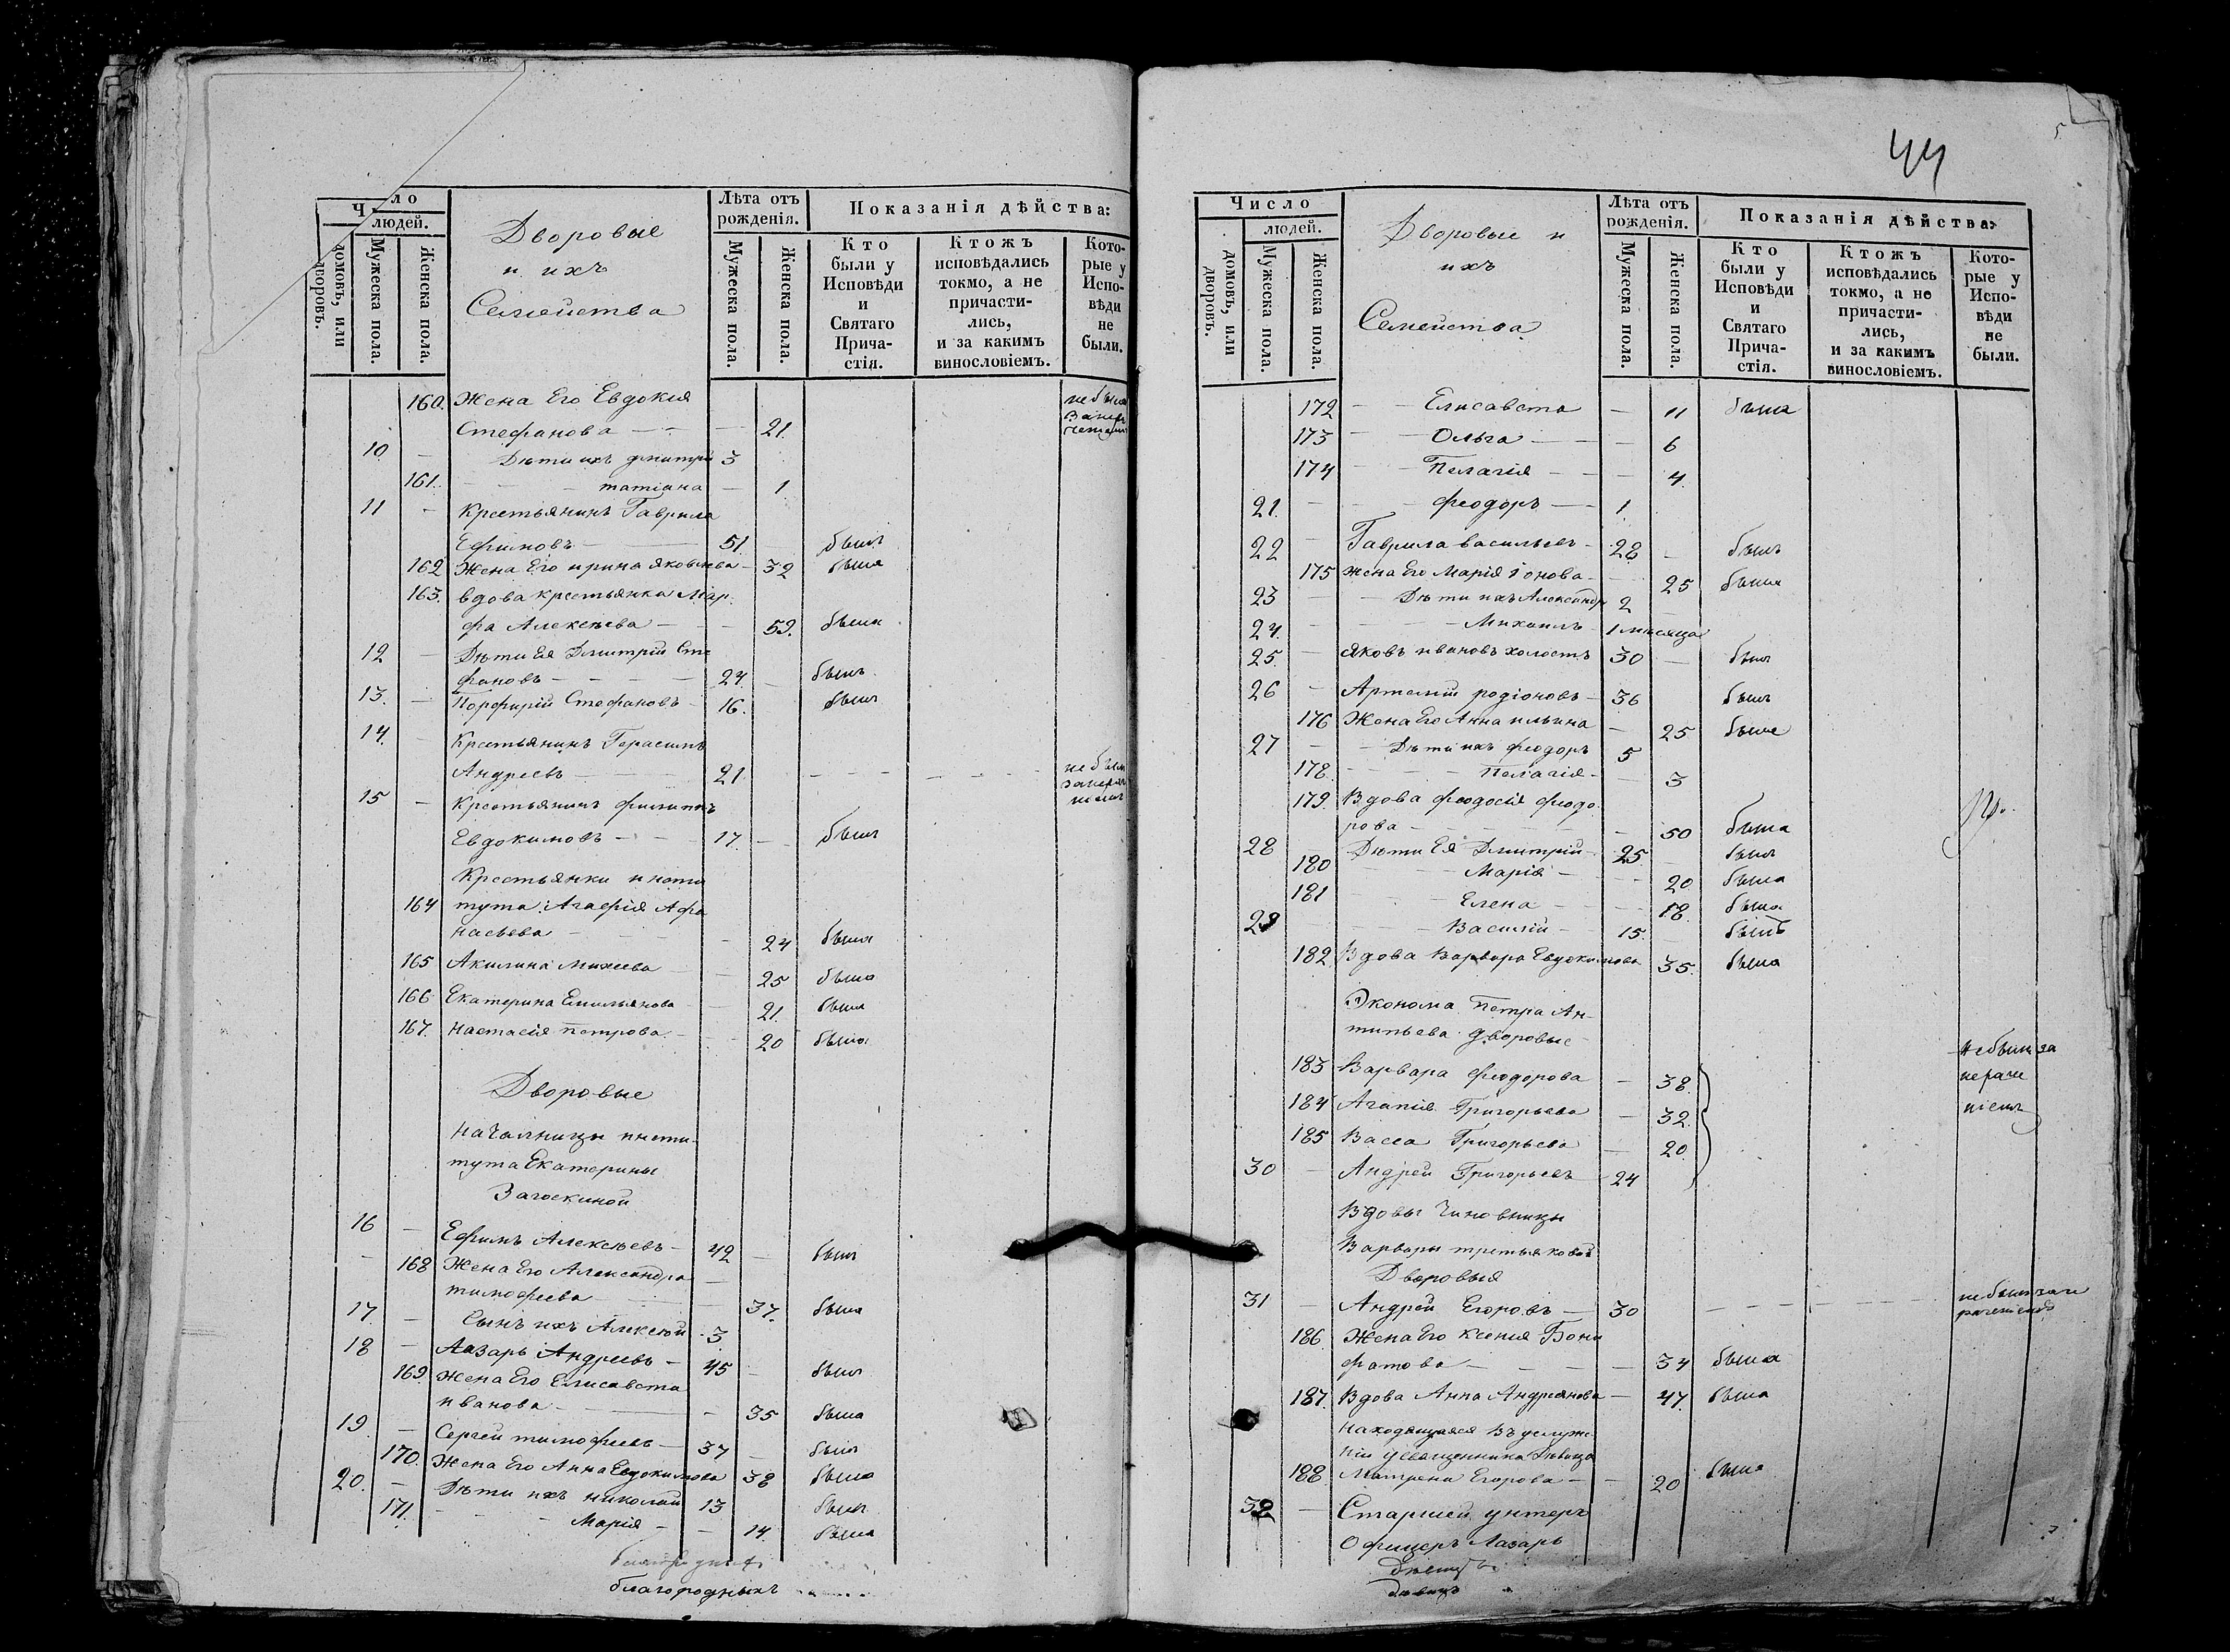 Число
людей.
домовъ, или дворовъ.
Мужеска пола.
Женска пола.
Дворовые
и ихъ
Семейства
Лѣта отъ рожденія.
Мужеска пола.
Женска пола.
Показанія дѣйства:
Кто были у Исповѣди и Святаго Причастія.
Ктожъ исповѣдались токмо, а не причастились, и за какимъ винословіемъ.
Которые у Исповѣди не были.
160. Жена Его Евдокия
Стефанова — — 21.
10 — Дѣти ихъ Дмитрій 3
161. — татіана — 1
11 — Крестьянинъ Гаврила
Ефимовъ — 51. былъ
162 Жена Его ирина яковлева — 32 была
163. вдова крестьянка Мар
фа Алексѣева — — 59. была
12 — Дѣти Ея Дмитрій Сте
фановъ — 24 — былъ
13. — Порфирій Стефановъ — 16. былъ
14. — Крестьянинъ Герасимъ
Андреевъ — 21. — — —
15 — Крестьянинъ филиппъ
Евдокимовъ — 17 — былъ
Крестьянки инсти
164 тута: Агафія Афа
насьева — 24 была
165 Акилина Михеева — 25 была
166 Екатерина Емильянова — 21. была
167. Настасія петрова — 20 была
Дворовые
начальницы инсти
тута Екатерины
Загоскиной
16 — Ефимъ Алексѣевъ — 42 — былъ
168 Жена Его Александра —
тимофеева — 37. была
17. — Сынъ ихъ Алексѣй 3
18 — Лазарь Андреевъ — 45 — былъ
169. Жена Его Елисавета
иванова — 35 была
19. — Сергей тимофеевъ — 37 — былъ
170. Жена Его Анна Евдокимова 38 была
20. — Дѣти ихъ николай 13 былъ
171. — Марія — — 14. была
благородныхъ
44
Число
людей.
домовъ, или дворовъ.
Мужеска пола.
Женска пола.
Дворовые и
ихъ
Семейства
Лѣта отъ рожденія.
Мужеска пола.
Женска пола.
Показанія дѣйства:
Кто были у Исповѣди и Святаго Причастія.
Ктожъ исповѣдались токмо, а не причастились, и за какимъ винословіемъ.
Которые у Исповѣди не были.
172 — Елисавета — 11 была
173 — Ольга — 6
174 — Пелагія — 4.
21. — феодоръ — 1.
22 — Гаврила васильевъ — 28 — былъ
175 жена Его Марія іонова — 25 была
23 — Дѣти ихъ Александръ 2
24. — Михаилъ — 1 мѣсяца
25. — яковъ ивановъ холостъ 30 — былъ
26 — Артемий родіоновъ — 36 былъ
176 Жена Его Анна ильина — 25 была
27 — Дѣти ихъ феодоръ 5
178. — пелагія — 3
179. Вдова феодосія феодо
рова — 50 была
28 Дѣти Ея Дмитрій — 25. былъ
180 — Марія — 20 была
181 — Елена — 18. была
29 — Василій — 15. былъ
182 Вдова Варвара Евдокимова 35. была
Эконома Петра Ан-
типьева дворовые
183 Варвара феодорова — 38.
184 Агапія Григорьева — 32
185 Васса Григорьева — 20
30 — Андрей Григорьевъ 24
не были за
нераче
ніемъ
Вдовы Чиновницы
Варвары третьяковой
Дворовыя
31 Андрей Егоровъ — 30 — — —
186. Жена Его ксения Бони
фатова — — 34 была
187. Вдова Анна Андреянова — 47. была
находящаяся Въ услуже
ніи у священника дѣвица
188 Матрена Егорова — 20 была
32 — Старшей унтеръ
Офицеръ Лазарь
дѣвицъ